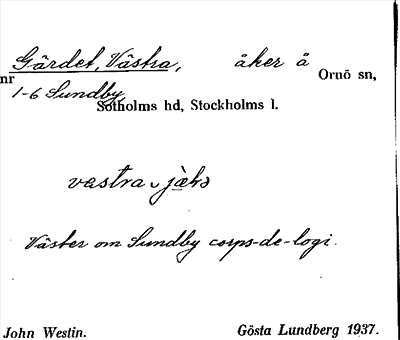 Gärdet, Västra, åker å Ornö sn,
nr 1-6 Sundby
Sotholms hd, Stockholms l.
Väster om Sundby corps-de-logi.
John Westin. Gösta Lundberg 1937.